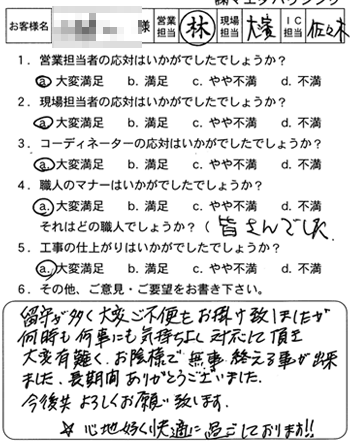 ㈱マエダハウジング
お客様名 様 営業担当 林 現場担当 大濱 IC担当 佐々木
1．営業担当者の応対はいかがでしたでしょうか？
a. 大変満足 b. 満足 c. やや不満 d. 不満
2．現場担当者の応対はいかがでしたでしょうか？
a. 大変満足 b. 満足 c. やや不満 d. 不満
3．コーディネーターの応対はいかがでしたでしょうか？
a. 大変満足 b. 満足 c. やや不満 d. 不満
4．職人のマナーはいかがでしたでしょうか？
a. 大変満足 b. 満足 c. やや不満 d. 不満
それはどの職人でしょうか？（ 皆さんでした
5．工事の仕上がりはいかがでしたでしょうか？
a. 大変満足 b. 満足 c. やや不満 d. 不満
6．その他、ご意見・ご要望をお書き下さい。
留守が多く大変ご不便もお掛け致しましたが
何時も何事にも気持ちよく対応して頂き
大変有難く、お陰様で無事終える事が出来
ました、長期間ありがとうございました。
今後共よろしくお願い致します。
☆ 心地好く快適に過ごしております!!